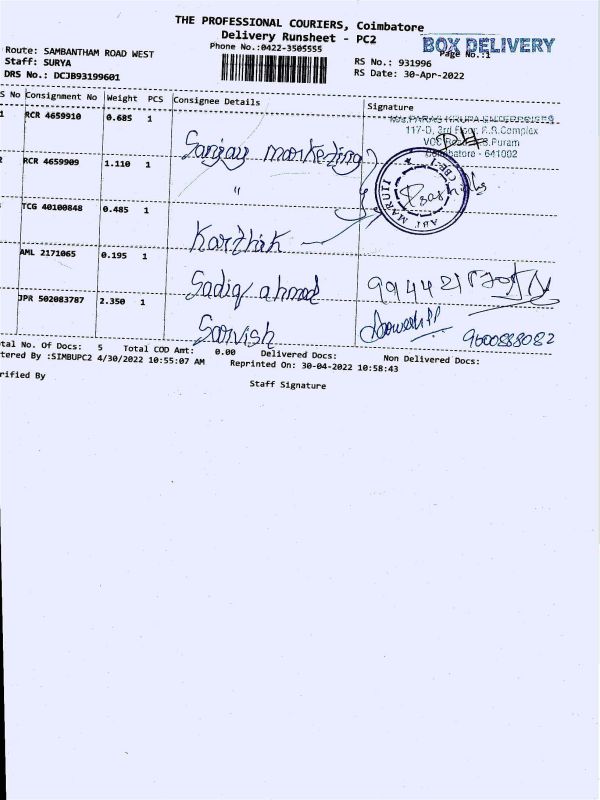 THE PROFESSIONAL COURIERS, Coimbatore
Delivery Runsheet - PC2
BOX DELIVERY
Phone No.:0422-3505555
Page No.:1
Route: SAMBANTHAM ROAD WEST
Staff: SURYA
DRS No.: DCJB93199601
RS No.: 931996
RS Date: 30-Apr-2022
S No Consignment No Weight PCS Consignee Details Signature
1 RCR 4659910 0.685 1
117-D, 3rd Floor, R.S.Complex
S.Puram
Coimbatore - 641002
Sanjay marketing
RCR 4659909 1.110 1
"
ABT MARUTI
TCG 40100848 0.485 1
Karthik
AML 2171065 0.195 1
Sadiq ahmed
JPR 502083787 2.350 1
Sarvish
9600888082
tal No. Of Docs: 5 Total COD Amt: 0.00 Delivered Docs: Non Delivered Docs:
tered By :SIMBUPC2 4/30/2022 10:55:07 AM Reprinted On: 30-04-2022 10:58:43
rified By
Staff Signature